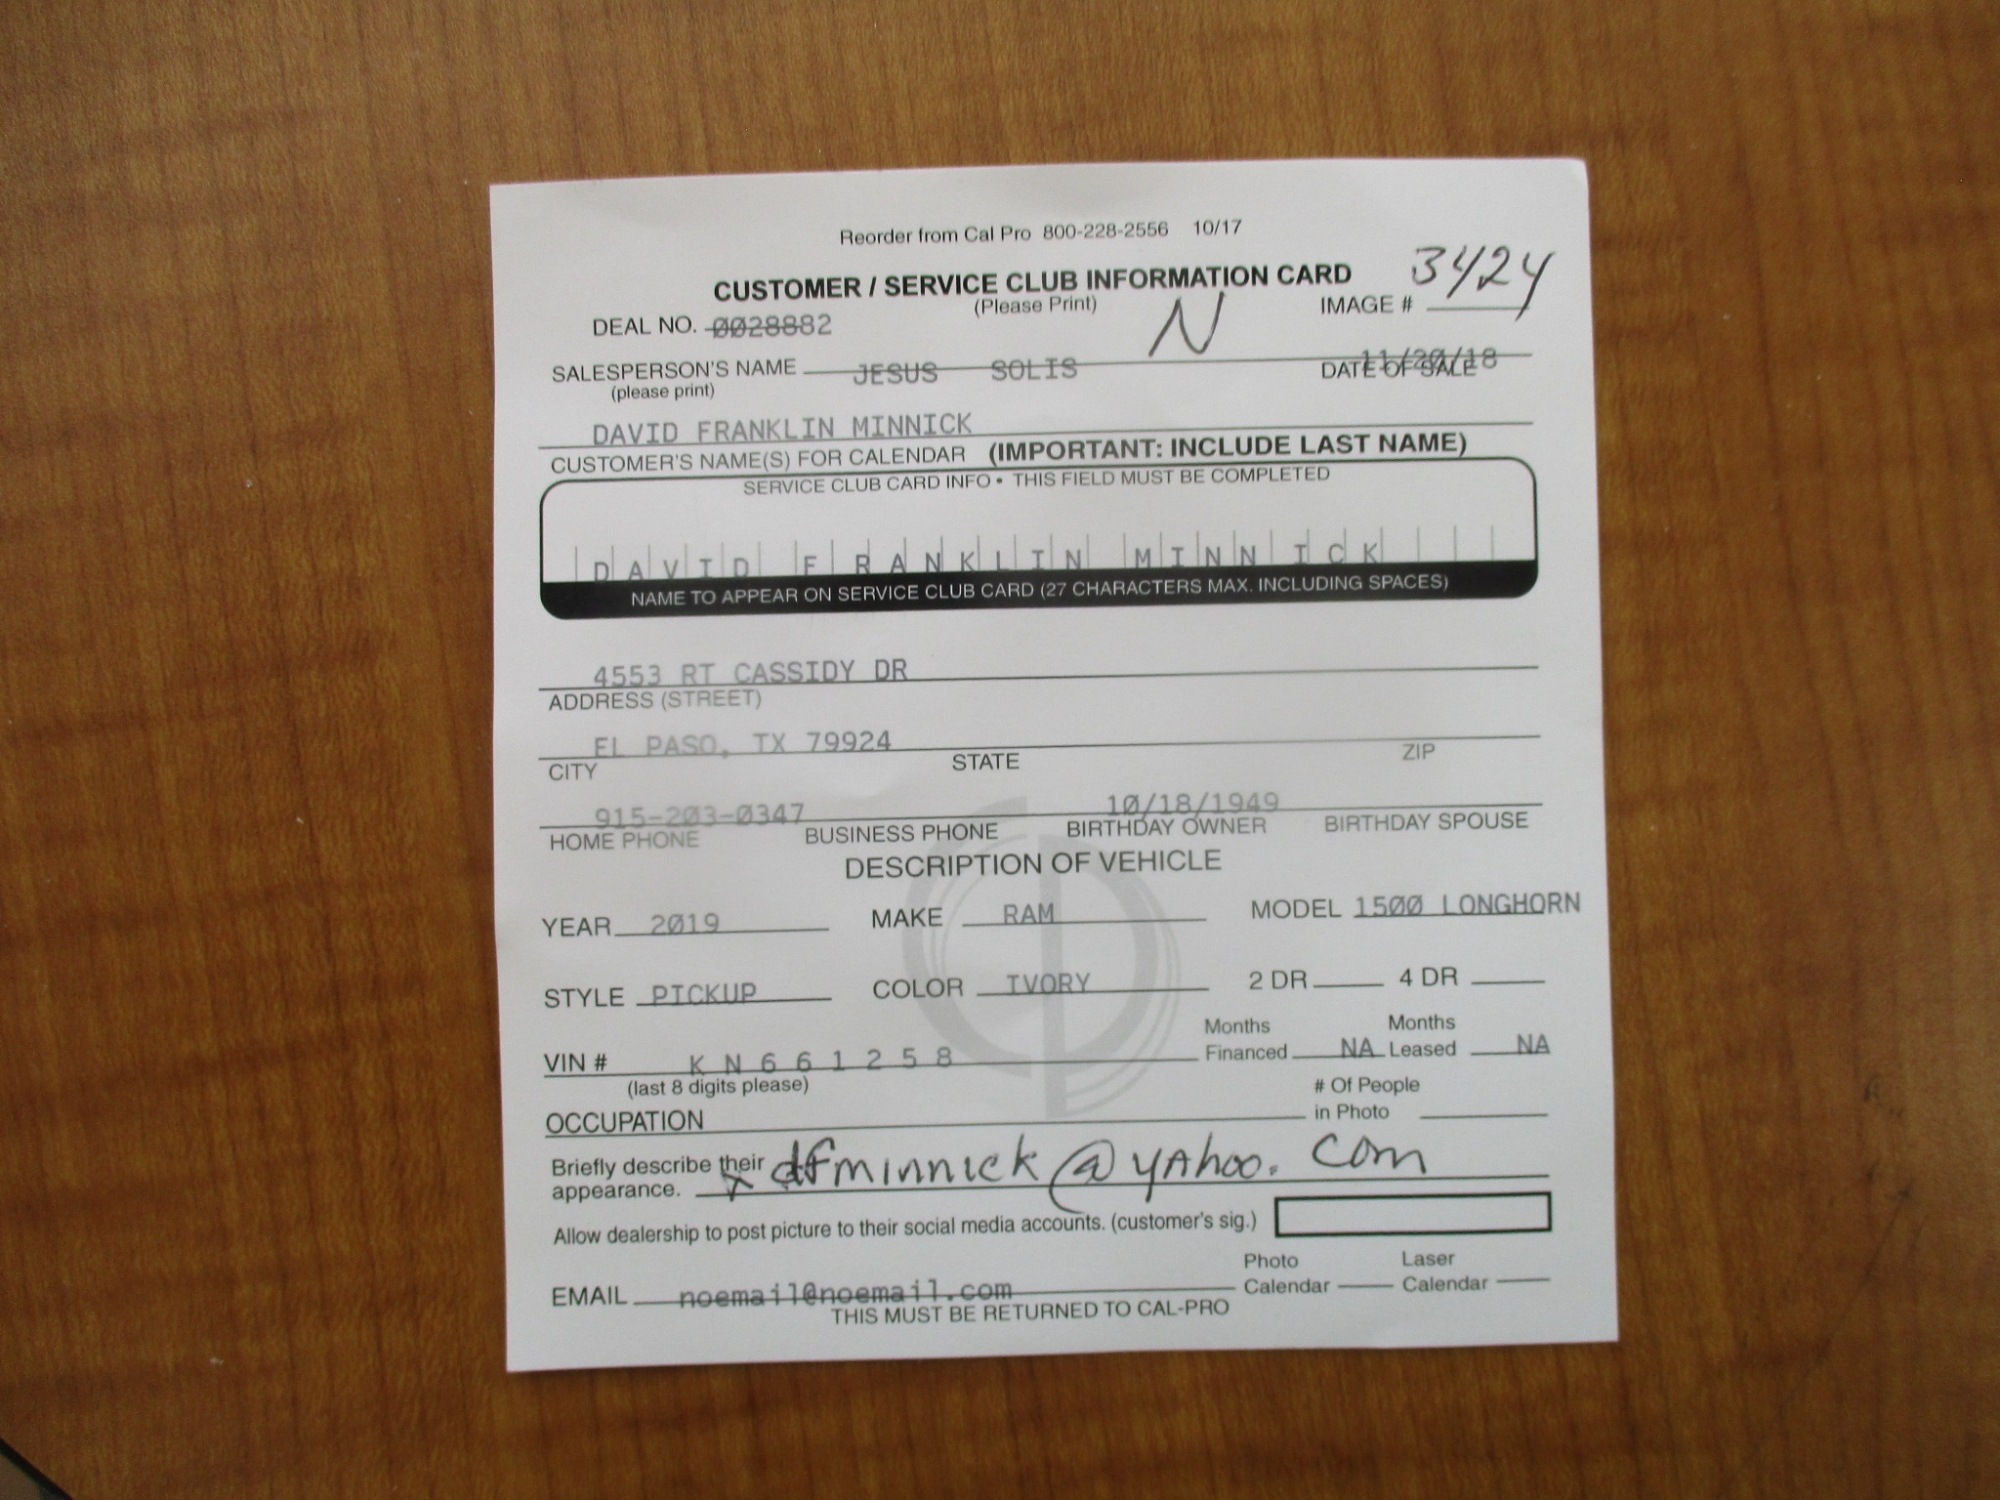 Reorder from Cal Pro 800-228-2556 10/17
CUSTOMER / SERVICE CLUB INFORMATION CARD
(Please Print) N IMAGE # 3424
DEAL NO. 0028882
SALESPERSON'S NAME JESUS SOLIS DATE OF SALE 11/20/18
(please print)
DAVID FRANKLIN MINNICK
CUSTOMER'S NAME(S) FOR CALENDAR (IMPORTANT: INCLUDE LAST NAME)
SERVICE CLUB CARD INFO • THIS FIELD MUST BE COMPLETED
DAVID FRANKLIN MINNICK
NAME TO APPEAR ON SERVICE CLUB CARD (27 CHARACTERS MAX. INCLUDING SPACES)
4553 RT CASSIDY DR
ADDRESS (STREET)
EL PASO, TX 79924
CITY STATE ZIP
915-203-0347 10/18/1949
HOME PHONE BUSINESS PHONE BIRTHDAY OWNER BIRTHDAY SPOUSE
DESCRIPTION OF VEHICLE
YEAR 2019 MAKE RAM MODEL 1500 LONGHORN
STYLE PICKUP COLOR IVORY 2 DR 4 DR
Months Months
VIN # K N 6 6 1 2 5 8 Financed NA Leased NA
(last 8 digits please) # Of People
OCCUPATION in Photo
Briefly describe their dfminnick@yahoo.com
appearance. x
Allow dealership to post picture to their social media accounts. (customer's sig.)
Photo Laser
EMAIL noemail@noemail.com Calendar Calendar
THIS MUST BE RETURNED TO CAL-PRO